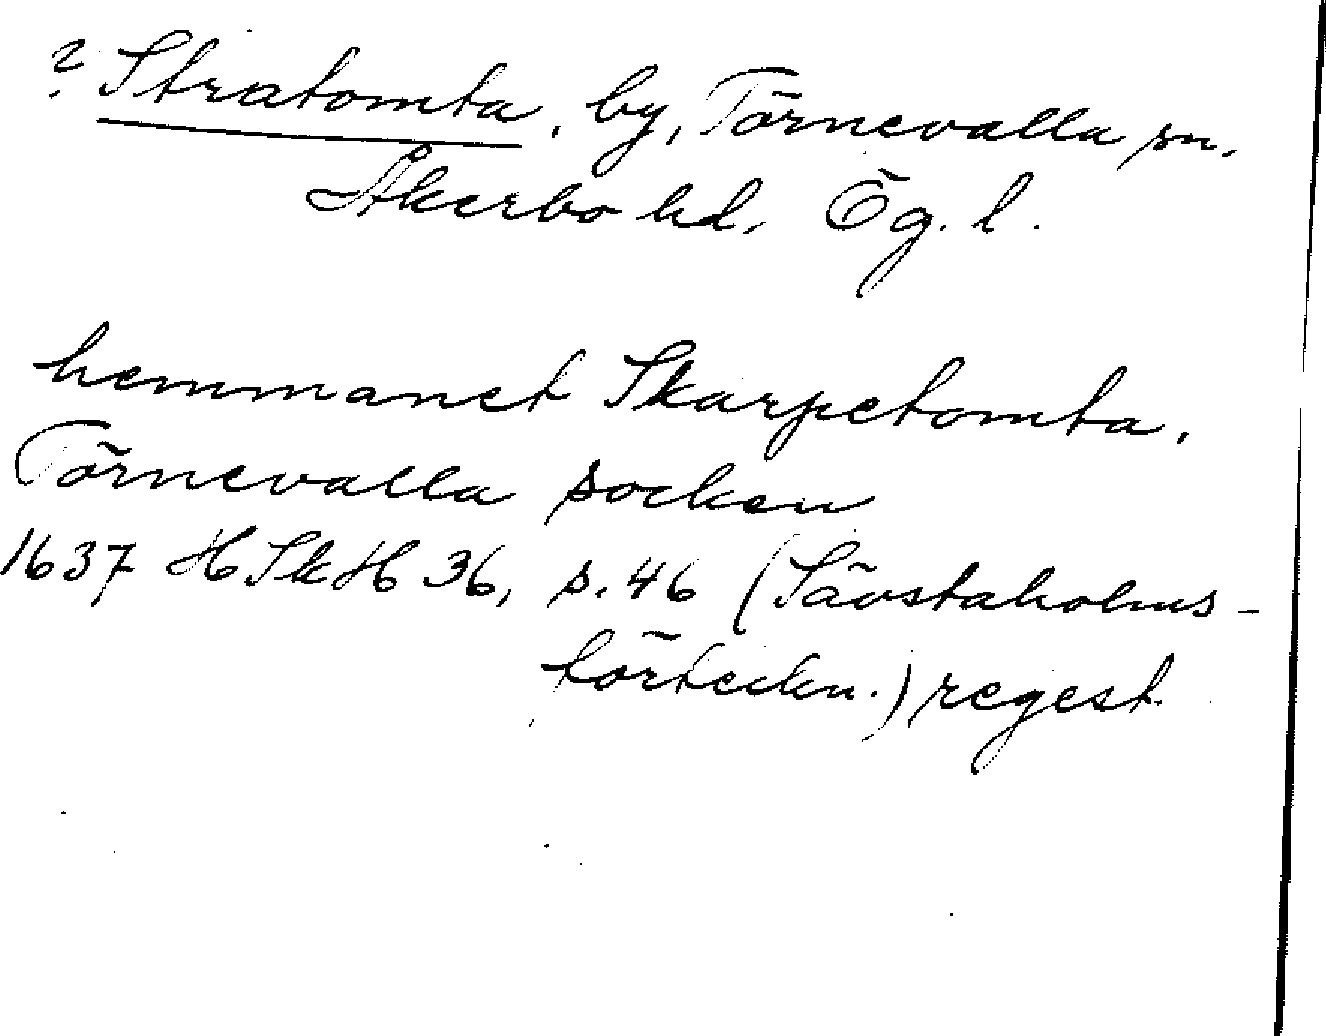 ? Stratomta, by, Törnevalla sn.
Åkerbo hd, Ög. l.
hemmanet Skarpetomta,
Törnevalla socken
1637 HSkH 36, s. 46 (Sävstaholms-
förteckn.) regest.